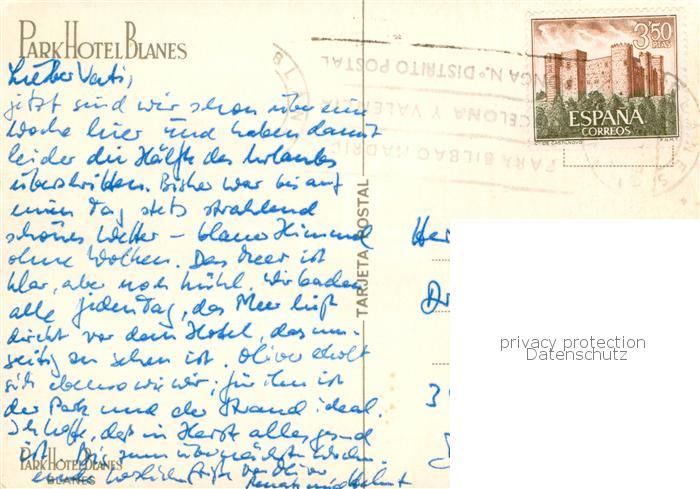 PARK HOTEL BLANES
Lieber Vati,
jetzt sind wir schon über eine
Woche hier und haben damit
leider die Hälfte des Urlaubes
überschritten. Bisher war bis auf
einen Tag stets strahlend
schönes Wetter – blauer Himmel
ohne Wolken. Das Meer ist
klar, aber noch kühl. Wir baden
alle jeden Tag, das Meer liegt
direkt vor dem Hotel, das
zu sehen ist. Oliver erholt
sich ebenso wie wir; für ihn ist
der Park und der Strand ideal.
Ich hoffe, daß in Herst alles gesund
ist. Bis zum übernächsten
herzlichen Grüße von Oliver
Renate und Helmut
PARK HOTEL BLANES
BLANES
TARJETA POSTAL
3'50
PTAS
ESPAÑA
CORREOS
CT. DE CASTILNOVO
F.N.M.T.
BLANES
PARA BILBAO MADRID
BARCELONA Y VALENCIA
PONGA N.º DISTRITO POSTAL
Her
Dr
3
privacy protection
Datenschutz